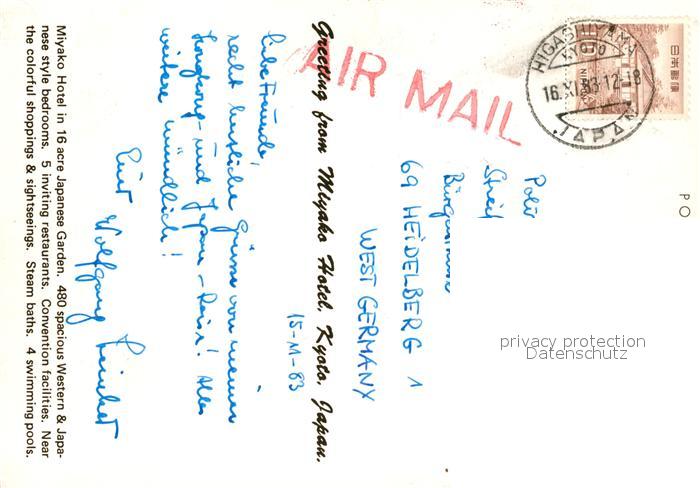 Miyako Hotel in 16 acre Japanese Garden. 480 spacious Western & Japa-
nese style bedrooms. 5 inviting restaurants. Convention facilities. Near
the colorful shoppings & sightseeings. Steam baths. 4 swimming pools.
Greeting from Miyako Hotel, Kyoto, Japan.
15-11-83
Liebe Freunde!
recht herzliche Grüsse von meiner
Hongkong- und Japan-Reise! Alles
weitere mündlich!
Euer Wolfgang
AIR MAIL
HIGASHIYAMA
KYOTO
16.XI.83.12-18
JAPAN
日本郵便
NIPPON
PO
69 HEIDELBERG 1
WEST GERMANY
privacy protection
Datenschutz